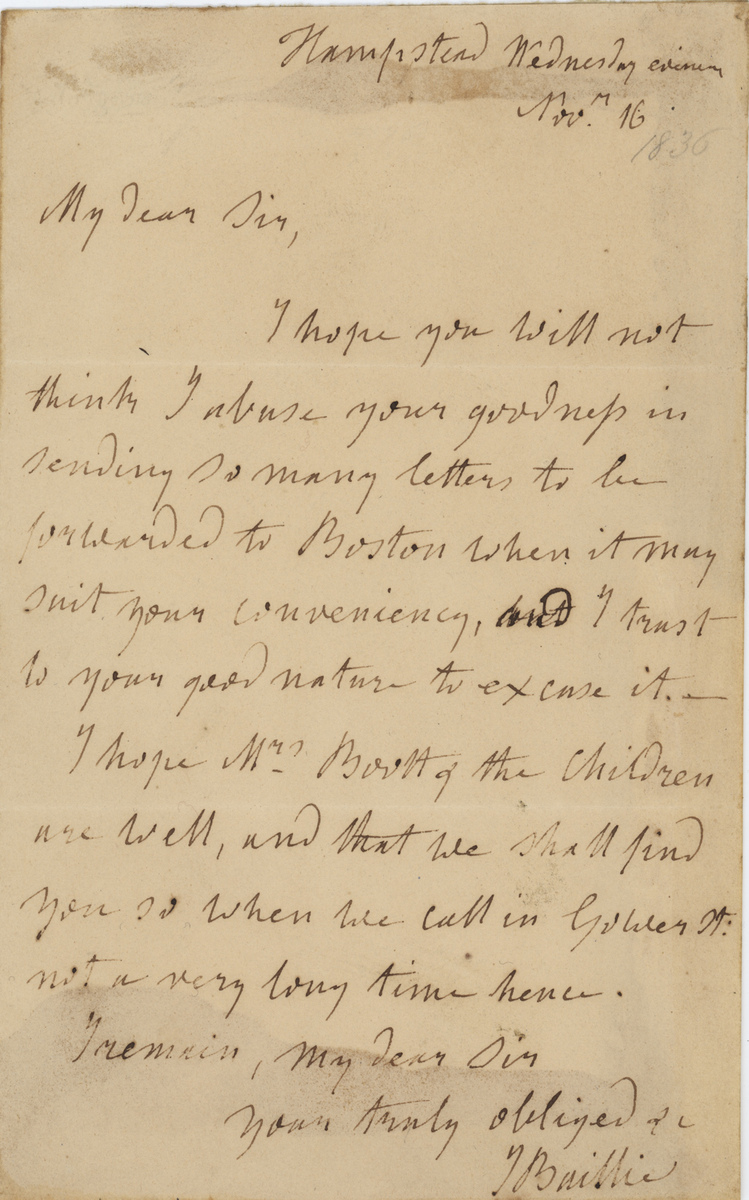 Hampstead Wednesday evening
Novr. 16
1836
My dear Sir,
I hope you will not
think I abuse your goodness in
sending so many letters to be
forwarded to Boston when it may
suit your conveniency, and I trust
to your good nature to excuse it. —
I hope Mrs Boott & the Children
are well, and that we shall find
you so when we call in Gower St:
not a very long time hence.
I remain, my dear Sir
your truly obliged &c
J Baillie